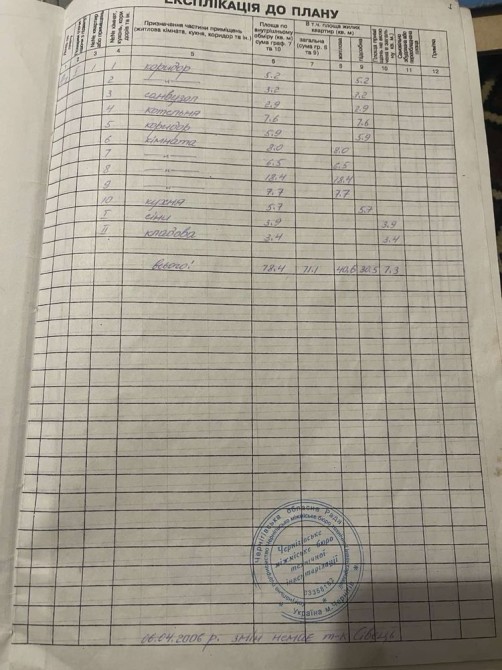 ЕКСПЛІКАЦІЯ ДО ПЛАНУ
Призначення частини приміщень (житлова кімната, кухня, коридор та ін.)
Площа по внутрішньому обміру (кв. м) сума граф. 7 та 10
В т.ч. площа жилих квартир (кв. м)
загальна (сума гр. 8 та 9)
житлова
підсобна
Примітка
3 4 5 6 7 8 9 10 11 12
1 коридор 5.2 5.2
2 —"— 3.2 3.2
3 санвузол 2.9 2.9
4 котельня 7.6 7.6
5 коридор 5.9 5.9
6 кімната 8.0 8.0
7 —"— 6.5 6.5
8 —"— 18.4 18.4
9 —"— 7.7 7.7
10 кухня 5.7 5.7
I сіни 3.9 3.9
II кладова 3.4 3.4
всього: 78.4 71.1 40.6 30.5 7.3
Чернігівська обласна Рада
Чернігівське
міжміське бюро
технічної
інвентаризації
Україна м. Чернігів
06.04.2006 р. змін немає